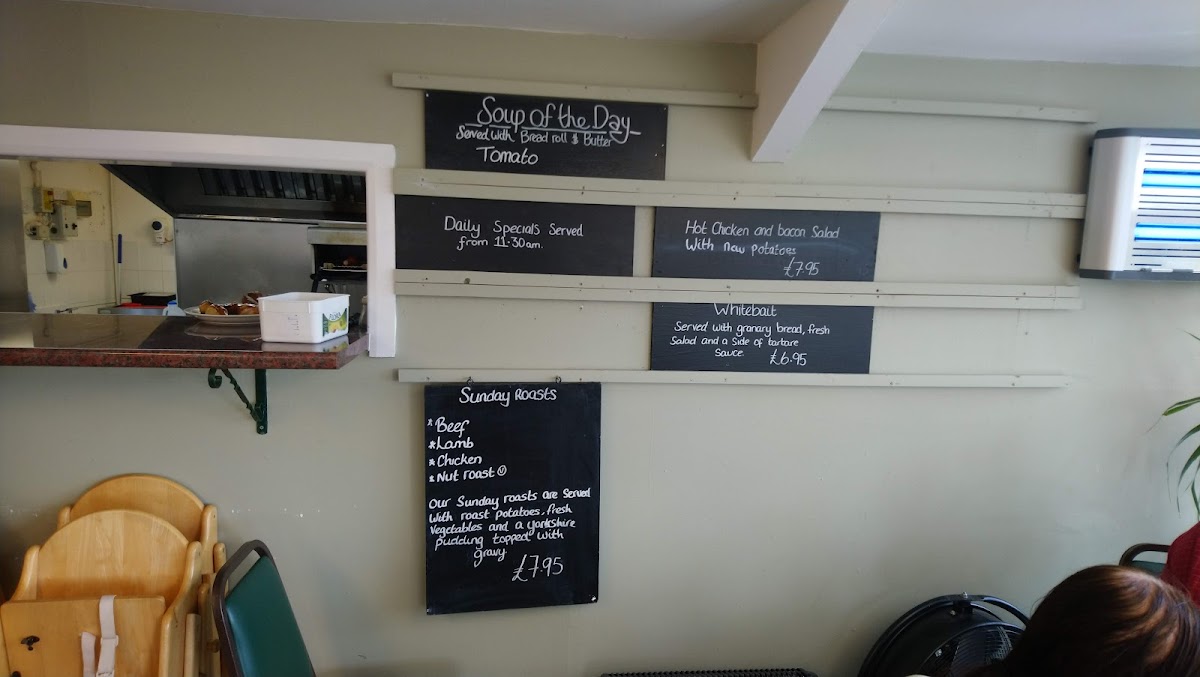 Soup of the Day
Served with Bread roll & Butter
Tomato
Daily Specials Served
from 11.30am.
Hot Chicken and bacon Salad
With new potatoes
£7.95
Whitebait
Served with granary bread, fresh
Salad and a side of tartare
sauce. £6.95
Sunday Roasts
* Beef
* Lamb
* Chicken
* Nut roast Ⓥ
Our Sunday roasts are Served
With roast potatoes, fresh
Vegetables and a yorkshire
pudding topped with
gravy.
£7.95